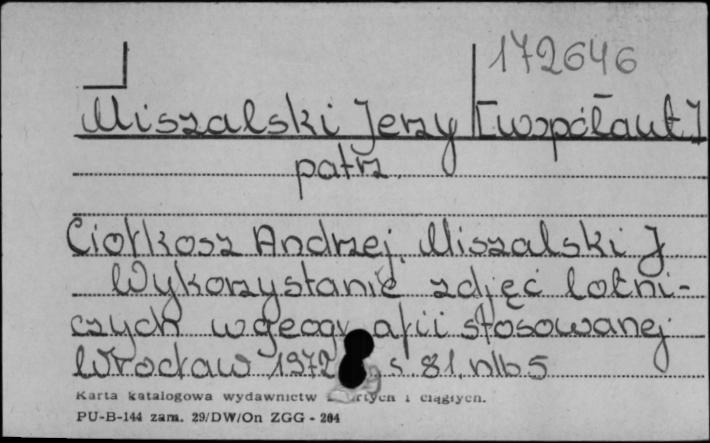 172646
Miszalski Jerzy [współaut.]
patrz.
Ciołkosz Andrzej, Miszalski J
Wykorzystanie zdjęć lotni-
czych w geografii stosowanej
Wrocław 1972 s. 81, nlb 5
Karta katalogowa wydawnictw zwartych i ciągłych.
PU-B-144 zam. 29/DW/On ZGG - 204